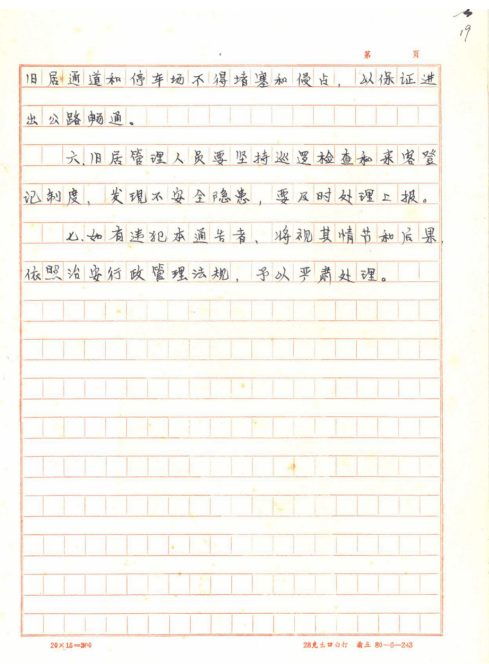 19
第 页
旧居通道和停车场不得堵塞和侵占，以保证进
出公路畅通。
六、旧居管理人员要坚持巡逻检查和来客登
记制度，发现不安全隐患，要及时处理上报。
七、如有违犯本通告者，将视其情节和后果，
依照治安行政管理法规，予以严肃处理。
20×15=300